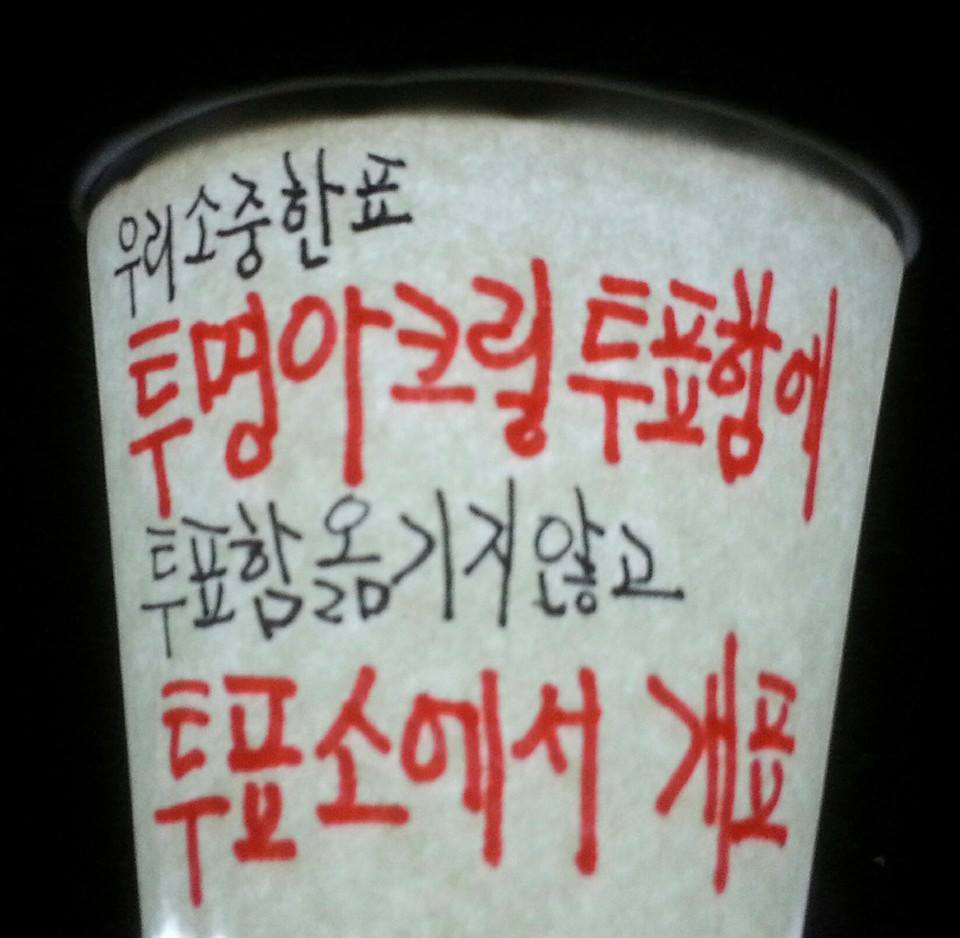 우리 소중한 표
투명아크릴 투표함에
투표함 옮기지 않고
투표소에서 개표